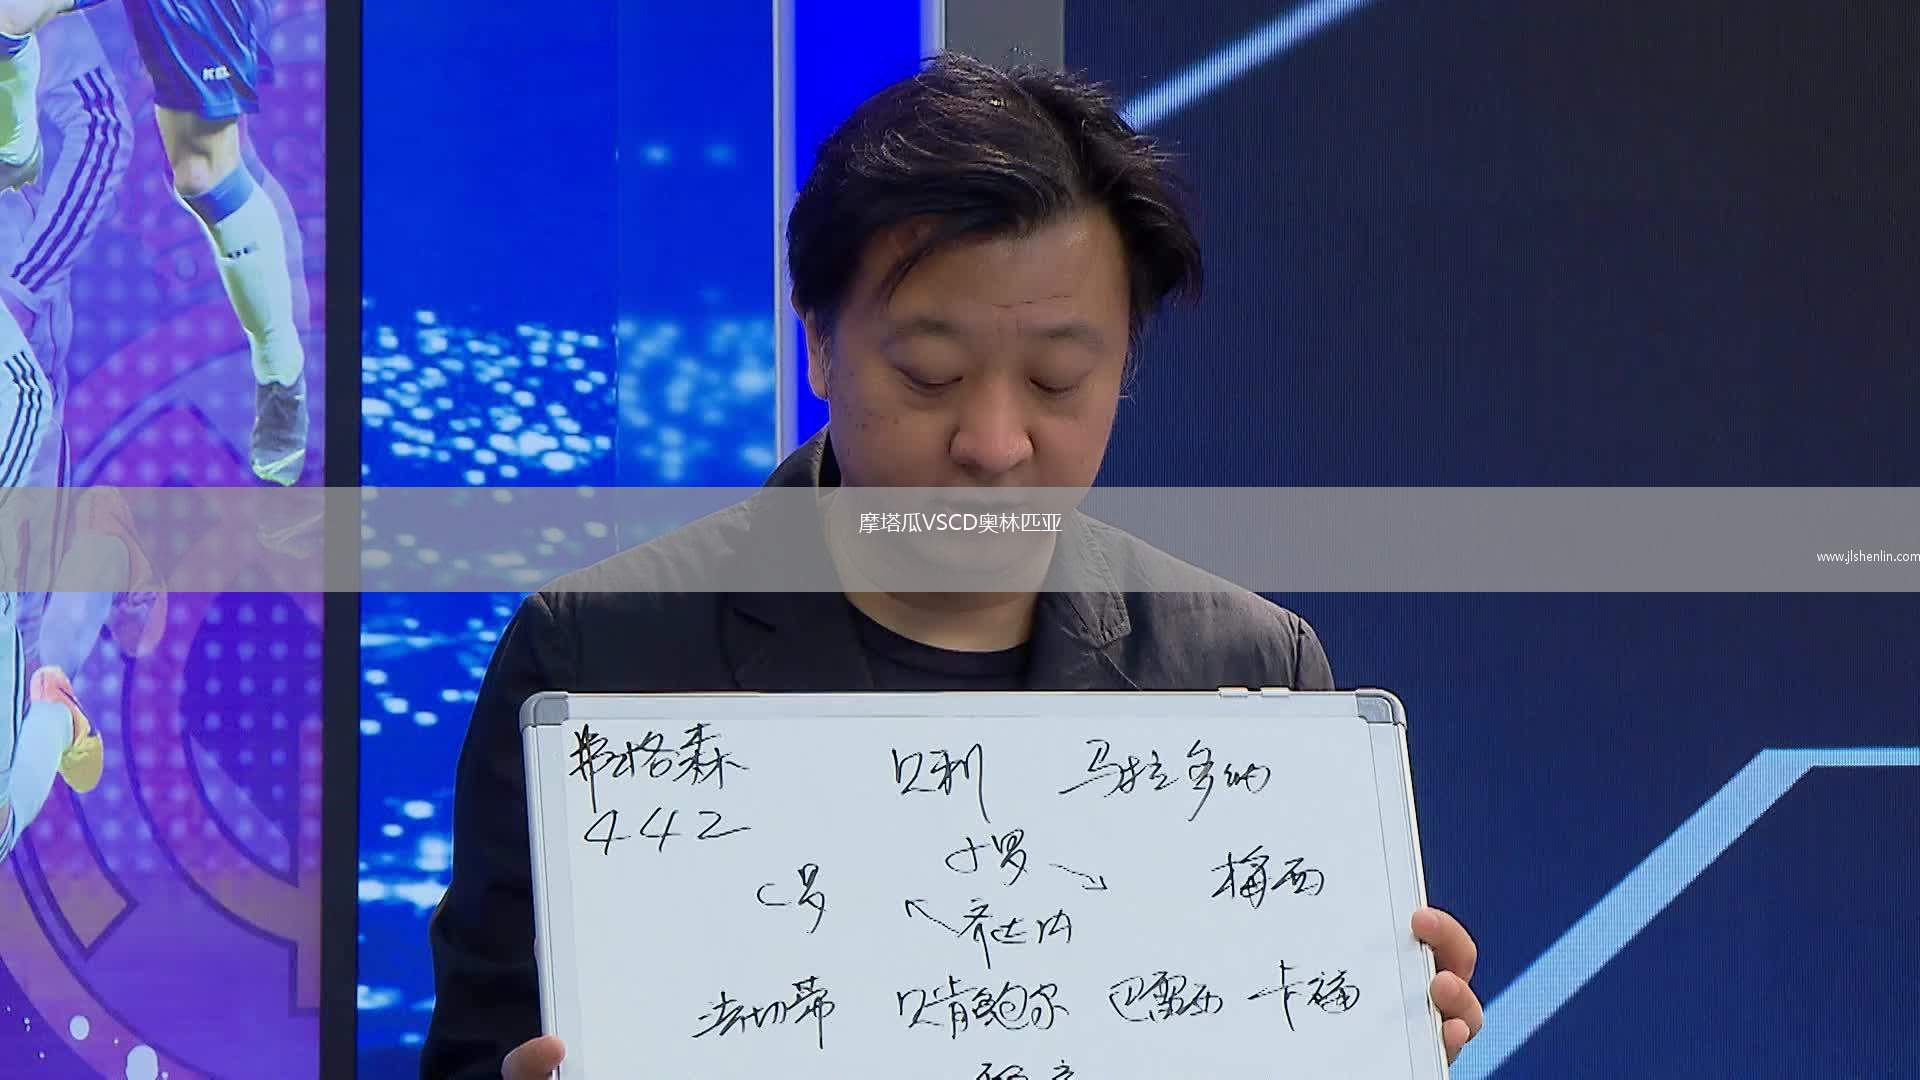 KEL
摩塔瓜VSCD奥林匹亚
www.jlshenlin.com
弗格森 贝利 马拉多纳
442
小罗
C罗 梅西
齐达内
法切蒂 贝肯鲍尔 巴雷西 卡福